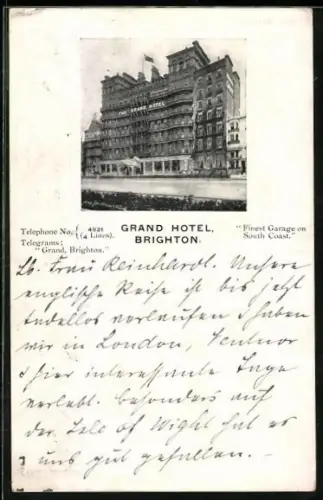 THE GRAND HOTEL
Telephone No. { 4921 (4 Lines).
Telegrams: "Grand, Brighton."
GRAND HOTEL,
BRIGHTON.
"Finest Garage on
South Coast."
Lb. Frau Reinhardt. Unsere
englische Reise ist bis jetzt
tadellos verlaufen & haben
wir in London, Ventnor
& hier interessante Tage
verlebt. besonders auf
der Isle of Wight hat es
uns gut gefallen. –